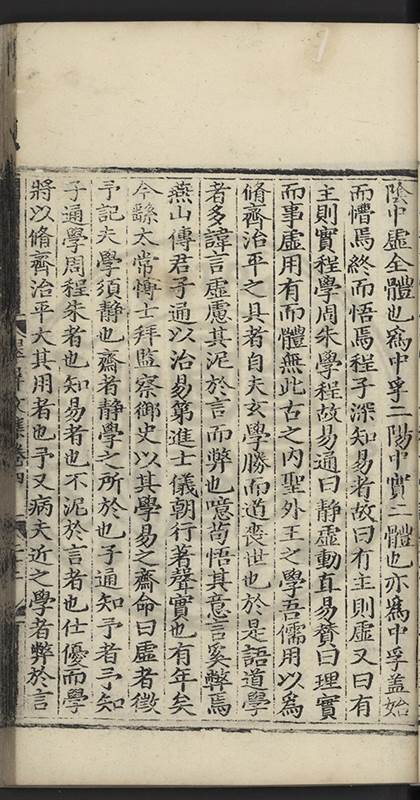 陰中虛全體也爲中孚二陽中實二體也亦爲中孚蓋始
而懵焉終而悟焉程子深知易者故曰有主則虛又曰有
主則實程學周朱學程故易通曰静虛動直易贊曰理實
而事虛用有而體無此古之内聖外王之學吾儒用以爲
脩齊治平之具者自夫玄學勝而道喪世也於是語道學
者多諱言虛慮其泥於言而弊也噫苟悟其意言奚弊焉
燕山傳君子通以治易第進士儀朝行著聲實也有年矣
今繇太常愽士拜監察御史以其學易之齋命曰虛者徵
予記夫學須静也齋者静學之所於也子通知予者予知
子通學周程朱者也知易者也不泥於言者也仕優而學
將以脩齊治平大其用者也予又病夫近之學者弊於言
文集卷四